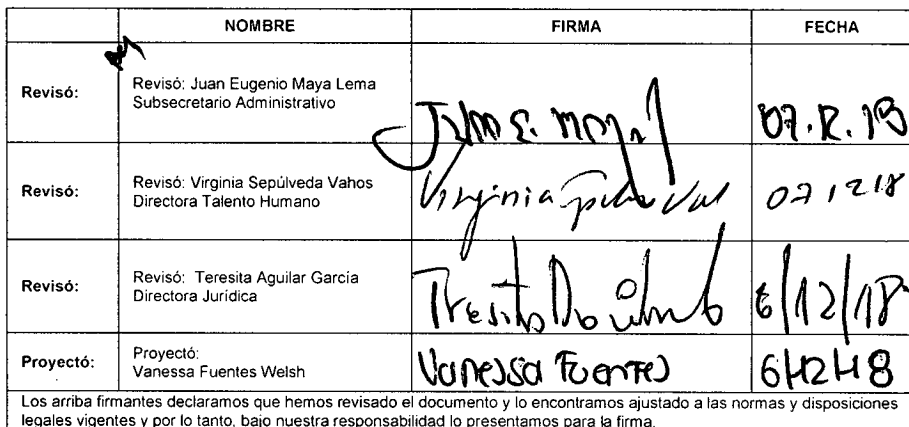 NOMBRE FIRMA FECHA
Revisó: Revisó: Juan Eugenio Maya Lema
Subsecretario Administrativo
07.12.18
Revisó: Revisó: Virginia Sepúlveda Vahos
Directora Talento Humano
Virginia 071218
Revisó: Revisó: Teresita Aguilar García
Directora Jurídica
6/12/18
Proyectó: Proyectó:
Vanessa Fuentes Welsh
Vanessa Fuentes 6/12/18
Los arriba firmantes declaramos que hemos revisado el documento y lo encontramos ajustado a las normas y disposiciones
legales vigentes y por lo tanto, bajo nuestra responsabilidad lo presentamos para la firma.